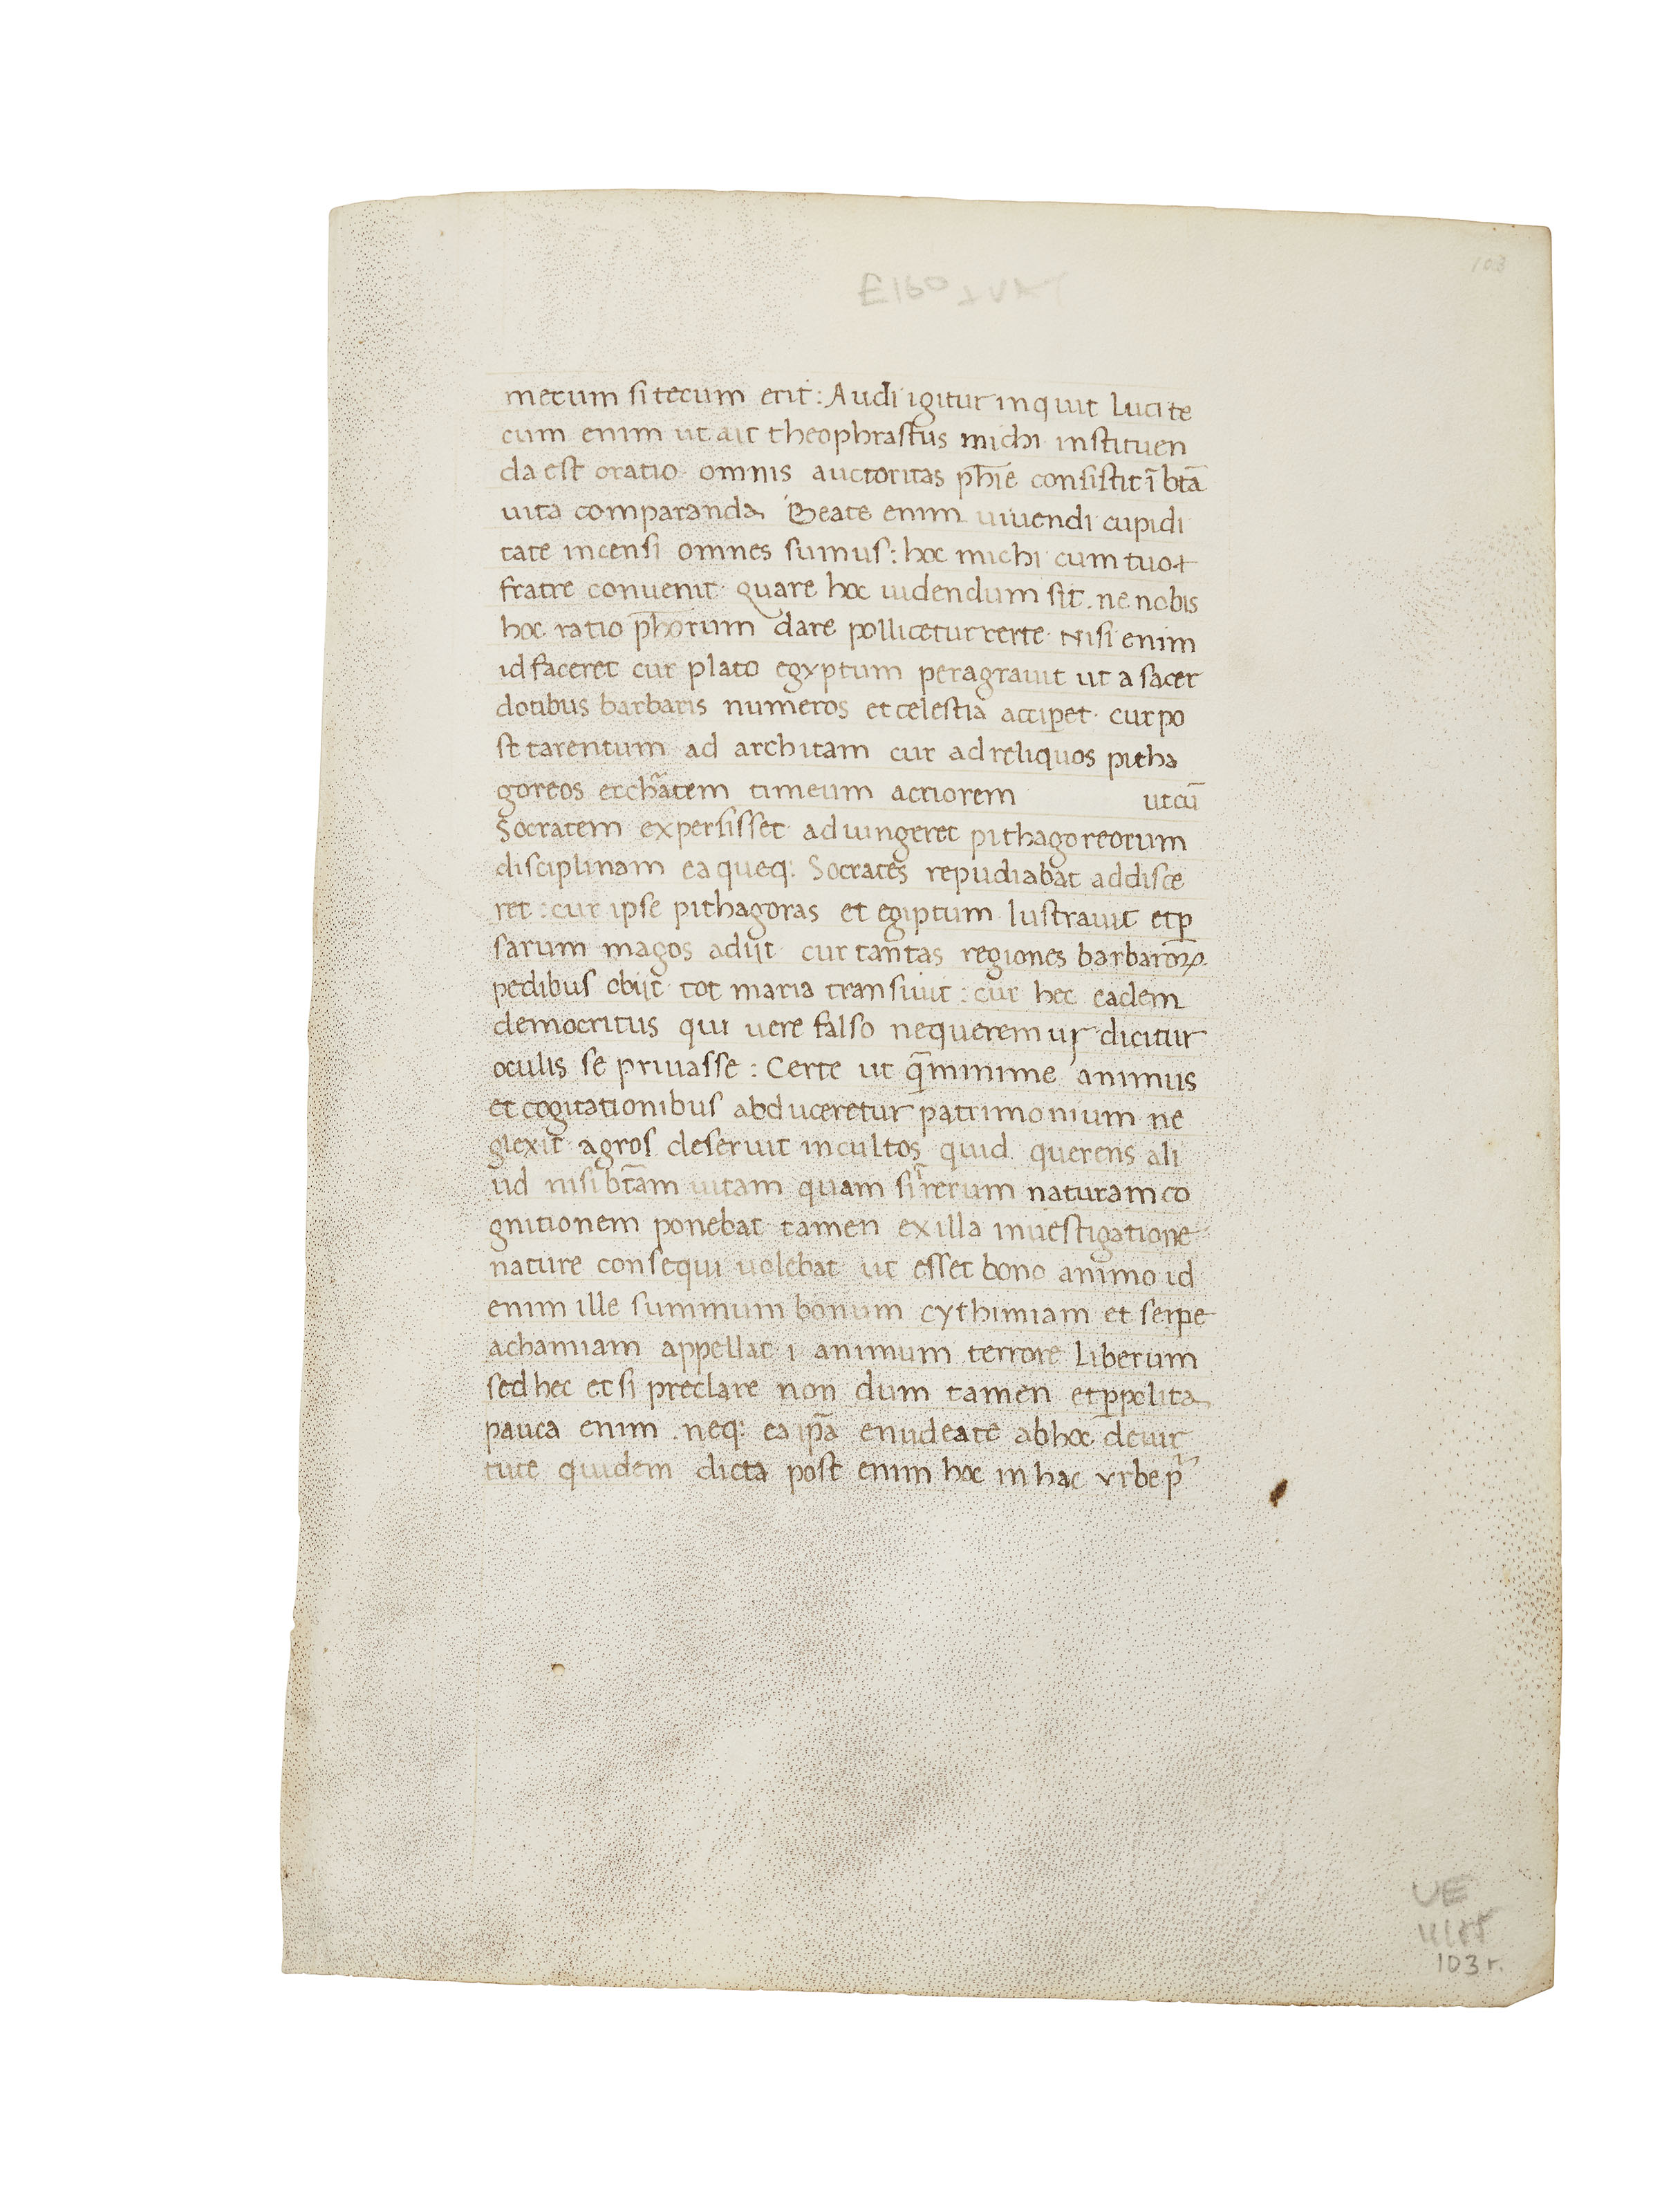 103
mecum si tecum erit : Audi igitur inquit luci te
cum enim ut ait theophrastus michi instituen
da est oratio omnis auctoritas ph̅ie consistit i̅ bt̅a
uita comparanda Beate enim uiuendi cupidi
tate incensi omnes sumus : hoc michi cum tuo
fratre conuenit quare hoc uidendum sit . ne nobis
hoc ratio ph̅orum dare pollicetur certe Nisi enim
id faceret cur plato egyptum peragrauit ut a sacer
dotibus barbaris numeros et celestia acciꝑet cur po
st tarentum ad architam cur ad reliquos pitha
goreos et timeum acriorem ut cu̅
Socratem expersisset adiungeret pithagoreorum
disciplinam ea queq; Socrates repudiabat addisce
ret : cur ipse pithagoras et egiptum lustrauit et ꝑ
sarum magos adijt cur tantas regiones barbaroꝝ
pedibus obijt tot maria transiuit : cur hec eadem
democritus qui uere falso ne queremur dicitur
oculis se priuasse : Certe ut q̅minime animus
et cogitationibus abduceretur patrimonium ne
glexit agros deseruit incultos quid querens ali
ud nisi bt̅am uitam quam si i̅ rerum naturam co
gnitionem ponebat tamen ex illa inuestigatione
nature consequi uolebat ut esset bono animo id
enim ille summum bonum cythimiam et serpe
achamiam appellat i animum terrore liberum
sed hec et si preclare non dum tamen et ꝑpolita
pauca enim neq; ea ip̅a enudeate ab hoc de uir
tute quidem dicta post enim hoc in hac vrbe p
UE
103 r.